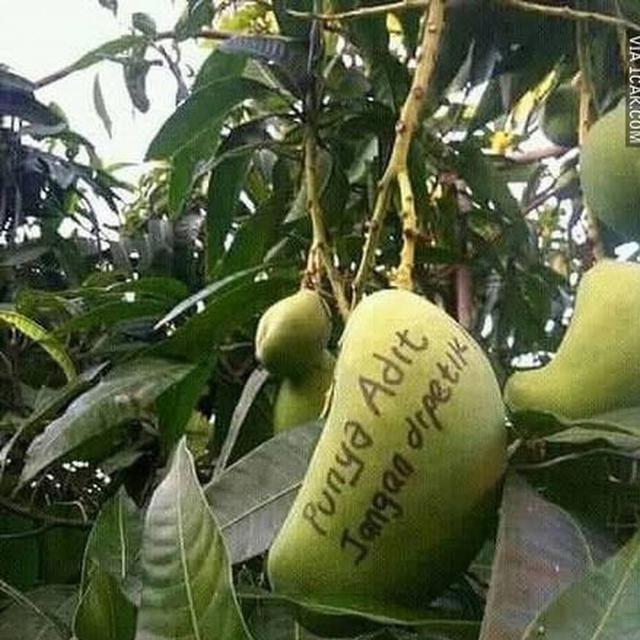 Punya Adit
Jangan dipetik
VIA 1CAK.COM